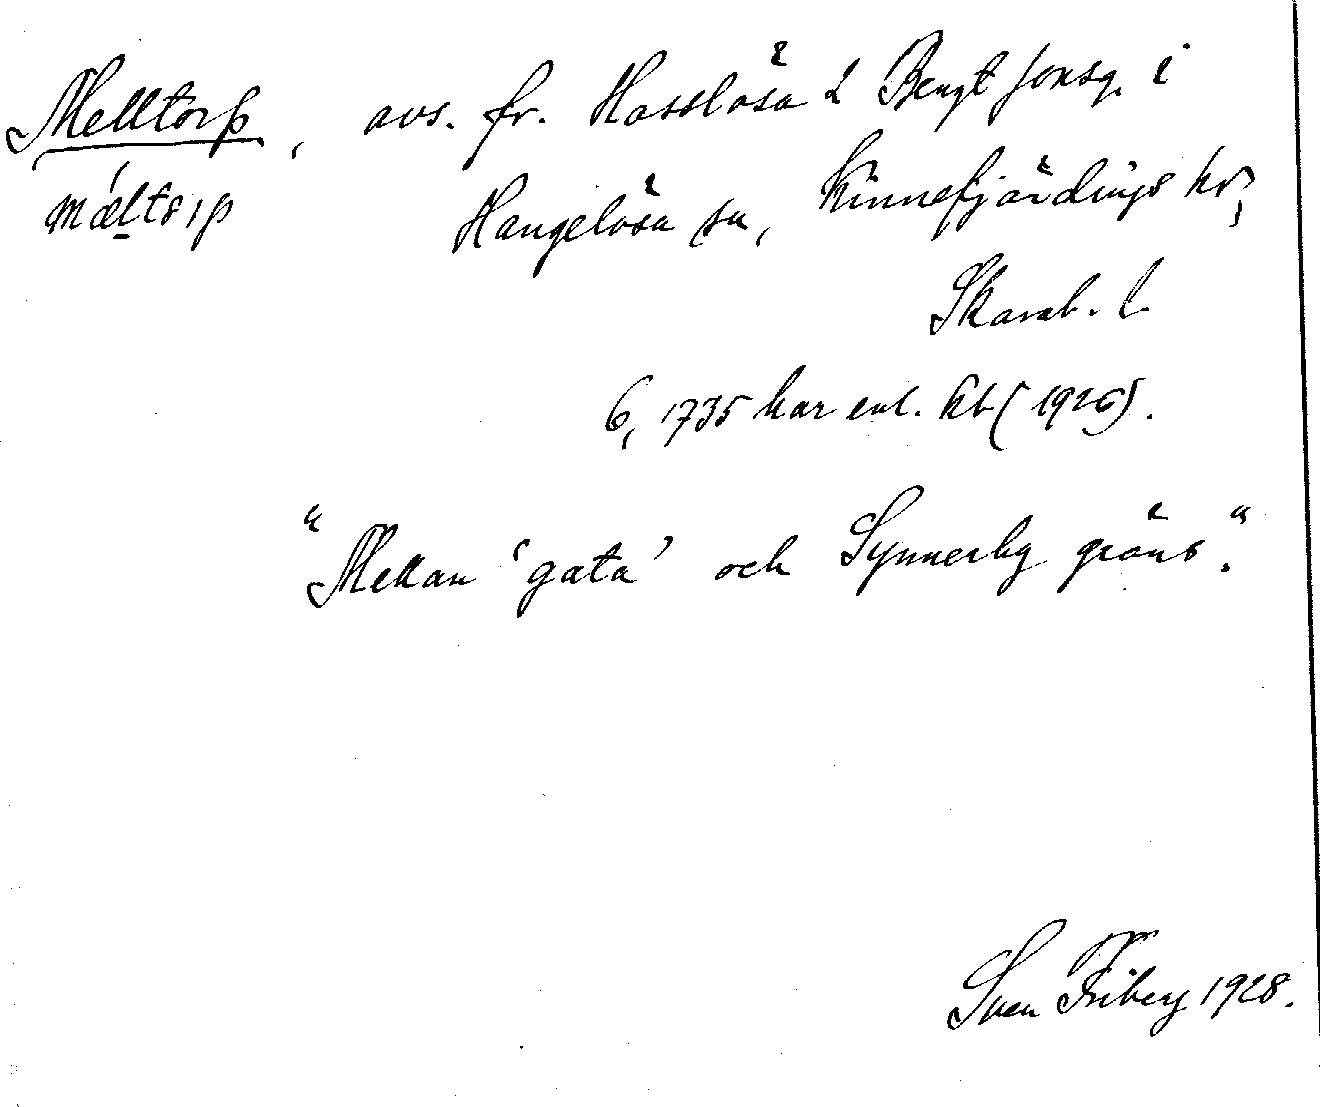 Melltorp, avs. fr. Hasslösa 2 Bengt Jonsg. i
mæltsıp Hangelösa sn, Kinnefjärdings hd,
Skarab. l.
6,1735 har enl. kb (1926).
"Mellan 'gata' och Synnerby gräns."
Sven Friberg 1928.